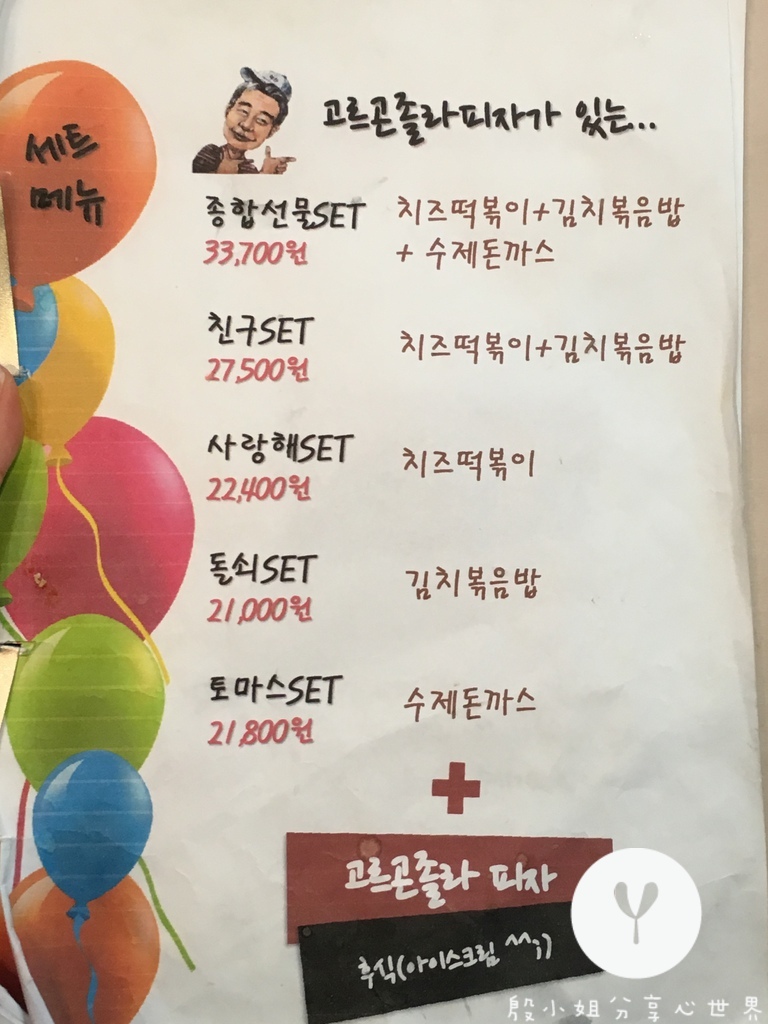 세트
메뉴
고르곤졸라피자가 있는..
종합선물SET
33,700원
치즈떡볶이+김치볶음밥
+ 수제돈까스
친구SET
27,500원
치즈떡볶이+김치볶음밥
사랑해SET
22,400원
치즈떡볶이
돌쇠SET
21,000원
김치볶음밥
토마스SET
21,800원
수제돈까스
+
고르곤졸라 피자
후식(아이스크림 ^^;;)
殷小姐分享心世界